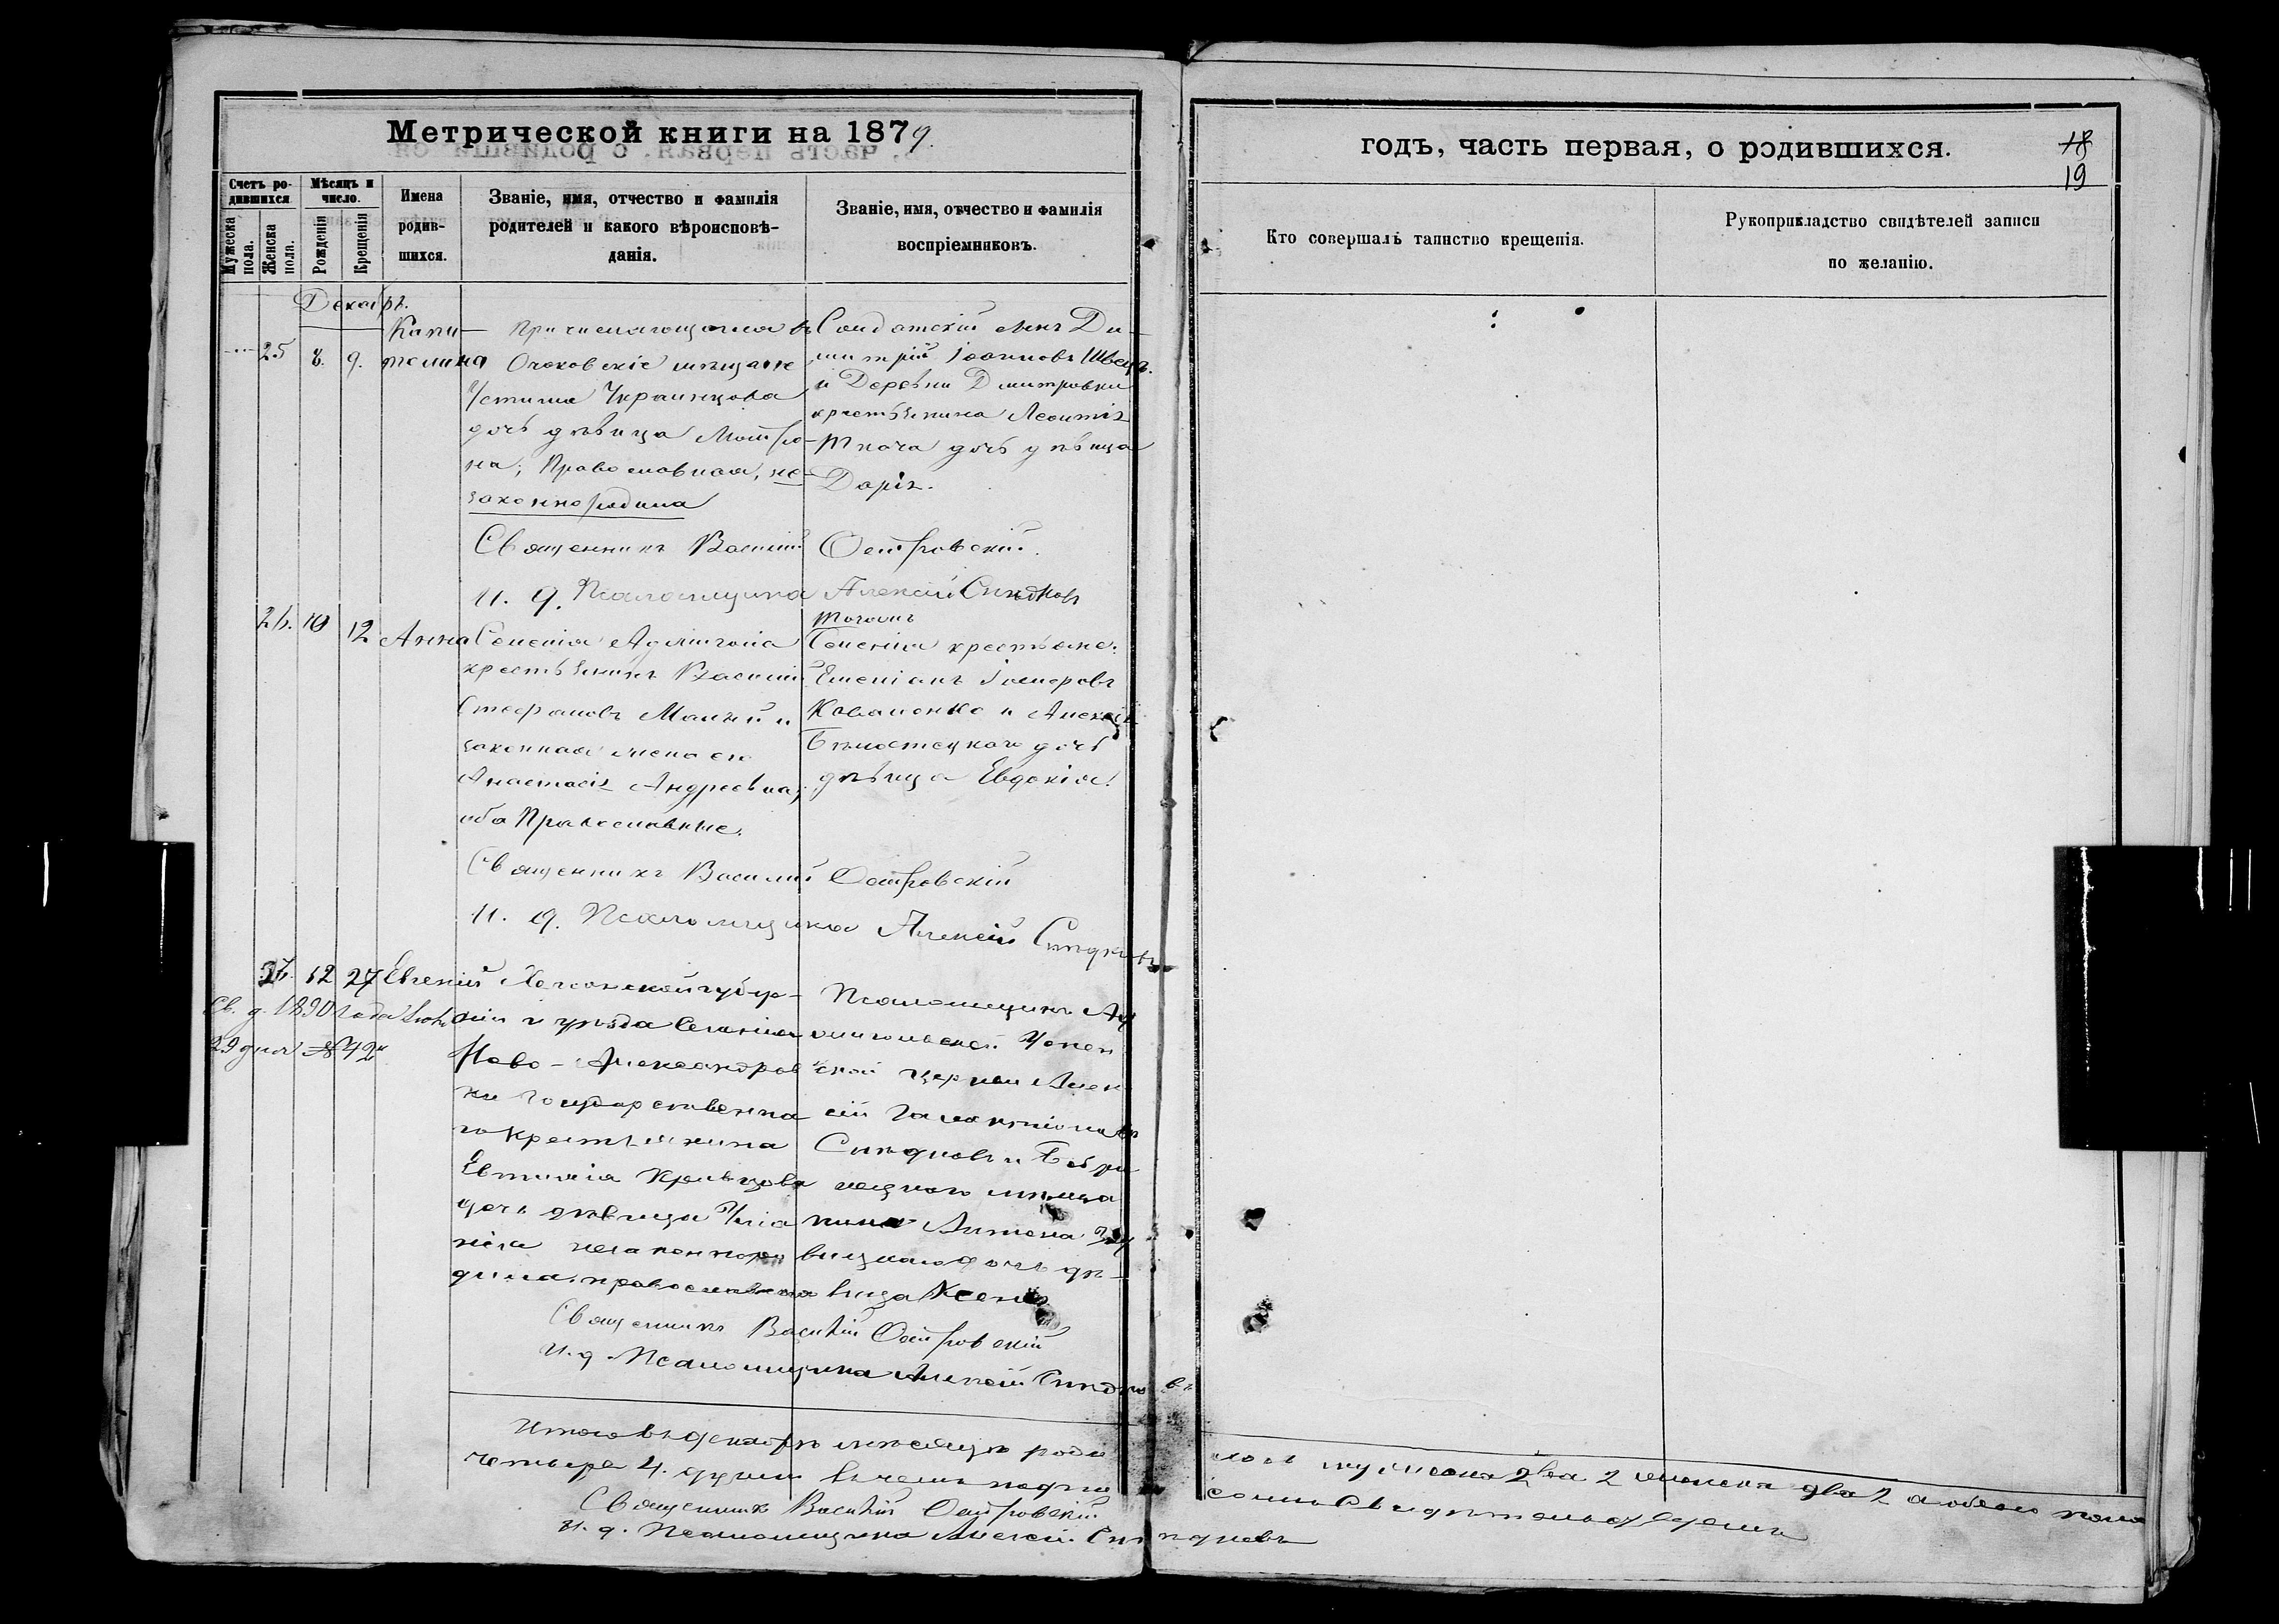 Метрической книги на 1879.
годъ, часть первая, о родившихся.
18
19
Счетъ ро-
дившихся.
Мѣсяцъ и
число.
Мужеска пола.
Женска пола.
Рожденія
Крещенія
Имена
родив-
шихся.
Званіе, имя, отчество и фамилія
родителей и какого вѣроисповѣ-
данія.
Званіе, имя, отчество и фамилія
воспріемниковъ.
Кто совершалъ таинство крещенія.
Рукоприкладство свидѣтелей записи
по желанію.
Декабрь.
25 8. 9. Капи-
толина
Причисляющаяся въ
Очаковскіе мѣщане
Устима Украинцова
дочь дѣвица Матро-
на, Православная, не-
законнородила
Солдатскій сынъ Ди-
митрій Іоанновъ Швецъ
и Деревни Дмитровки
крестьянина Леонтія
Ткача дочь дѣвица
Дарія.
Священникъ Василій Островскій.
И. д. Псаломщика Алексій Сиѣдковъ
26. 10 12 Анна
Селенія Аджиголa
крестьянинъ Василій
Стефановъ Малый и
законная жена его
Анастасія Андреевна,
оба Православные.
тогожъ
Селенія крестьяне:
Емеліанъ
Коваленко и Алексія
дочь
дѣвица Евдокія.
Священникъ Василій Островскій
И. д. Псаломщика Алексій Сиѣдковъ
12 27 Евгеній
Св. д. 1890 года
29 дня № 42
Херсонской губер-
ніи и уѣзда Селенія
Ново-Александров
ки Государственна
го крестьянина
Евтихія Кравцова
дочь дѣвица Уліа
нія незаконноро
дила, православная
Псаломщикъ
Успен
ской церкви Алек
сій Галактіоновъ
Сиѣдковъ и Бобри
нецкаго мѣща
нина Антона
дочь дѣ-
вица Ксенія
Священникъ Василій Островскій
И. д. Псаломщика Алексій Сиѣдковъ
Итого въ декабрѣ мѣсяцѣ роди
лось мужеска два 2 женска два 2 а обоего пола
четыре 4. души въ чемъ подпи
сомъ Свидѣтельствуемъ
Священникъ Василій Островскій
И. д. Псаломщика Алексій Сиѣдковъ